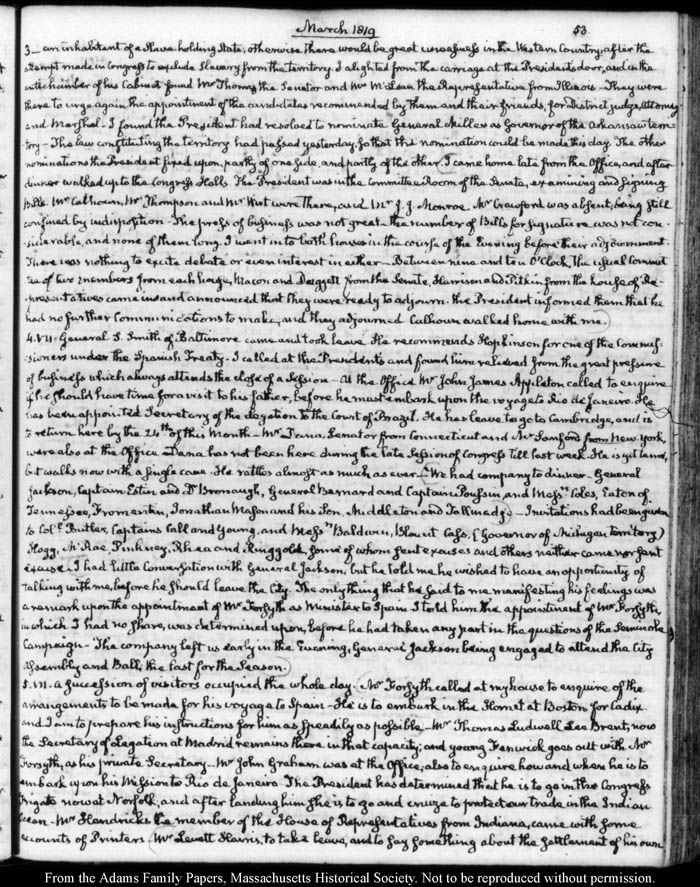 March 1819
53.
3_ an inhabitant of a Slave holding State; otherwise there would be great uneasiness in the Western Country, after the
attempt made in Congress to exclude Slavery from the territory. I alighted from the carriage at the President's door, and in the
antichamber of his Cabinet found Mr Thomas the Senator and Mr McLean the Representative from Illinois_ They were
there to urge again the appointment of the candidates recommended by them and their friends, for District judge, Attorney
and Marshal_ I found the President had resolved to nominate General Miller as Governor of the Arkansaw terri-
tory_ The law constituting the territory had passed yesterday, so that the nomination could be made this day. The other
nominations the President fixed upon, partly of one side, and partly of the other. I came home late from the Office, and after
dinner walked up to the Congress Hall. The President was in the Committee Room of the Senate, examining and signing
Bills. Mr Calhoun, Mr Thompson and Mr Wirt were there, and Mr J. J. Monroe. Mr Crawford was absent; being still
confined by indisposition_ The press of business was not great_ the number of Bills for signature was not con-
siderable, and none of them long. I went into both houses in the course of the Evening before their adjournment.
There was nothing to excite debate or even interest in either_ Between nine and ten O'Clock, the usual Commit-
tee of two members from each house, Macon and Daggett from the Senate, Harrison and Pitkin from the house of Re-
presentatives came in and announced that they were ready to adjourn. The President informed them that he
had no further Communications to make, and they adjourned. Calhoun walked home with me.
4. VII. General S. Smith of Baltimore came and took leave. He recommends Hopkinson for one of the Commis-
sioners under the Spanish Treaty. I called at the President's and found him relieved from the great pressure
of business which always attends the close of a Session_ At the Office Mr John James Appleton called to enquire
if he should have time for a visit to his father, before he must embark upon the voyage to Rio de Janeiro. He
has been appointed Secretary of the Legation to the Court of Brazil. He has leave to go to Cambridge, and is
to return here by the 24th of this Month_ Mr Dana, Senator from Connecticut and Mr Sanford from New York,
were also at the Office. Dana has not been here during the late Session of Congress till last week. He is yet lame,
but walks now with a single cane. He rattles almost as much as ever_ We had company to dinner_ General
Jackson, Captain Easton and Dr Bronaugh, General Bernard and Captain Poussin and Messrs Coles, Eaton of
Tennessee, Fromentin, Jonathan Mason and his Son, Middleton and Talmadge_ Invitations had been given
to Coll. Butler, Captains Call and Young, and Messrs Baldwin, Blount Cass, (Governor of Michigan Territory)
Hogg, McRae, Pinkney, Rhea and Ringgold, some of whom sent excuses and others neither came nor sent
excuse. I had little Conversation with General Jackson, but he told me he wished to have an opportunity of
talking with me, before he should leave the City. The only thing that he said to me manifesting his feelings was
a remark upon the appointment of Mr Forsyth as Minister to Spain. I told him the appointment of Mr Forsyth,
in which I had no share, was determined upon, before he had taken any part in the questions of the Seminole
Campaign_ The company left us early in the Evening, General Jackson being engaged to attend the City
Assembly and Ball; the last for the Season.
5. VII. A succession of visitors occupied the whole day. Mr Forsyth called at my house to enquire of the
arrangements to be made for his voyage to Spain_ He is to embark in the Hornet at Boston for Cadiz
and I am to prepare his instructions for him as speedily as possible_ Mr Thomas Ludwell Lee Brent, now
the Secretary of Legation at Madrid remains there in that capacity; and young Fenwick goes out with Mr
Forsyth, as his private Secretary_ Mr John Graham was at the Office, also to enquire how and where he is to
embark upon his Mission to Rio de Janeiro. The President has determined that he is to go in the Congress
Frigate now at Norfolk, and after landing him she is to go and cruize to protect our trade in the Indian
Ocean_ Mr Hendricks the member of the House of Representatives from Indiana, came with some
accounts of Printers. Mr Levett Harris, to take leave, and to say something about the settlement of his own
From the Adams Family Papers, Massachusetts Historical Society. Not to be reproduced without permission.